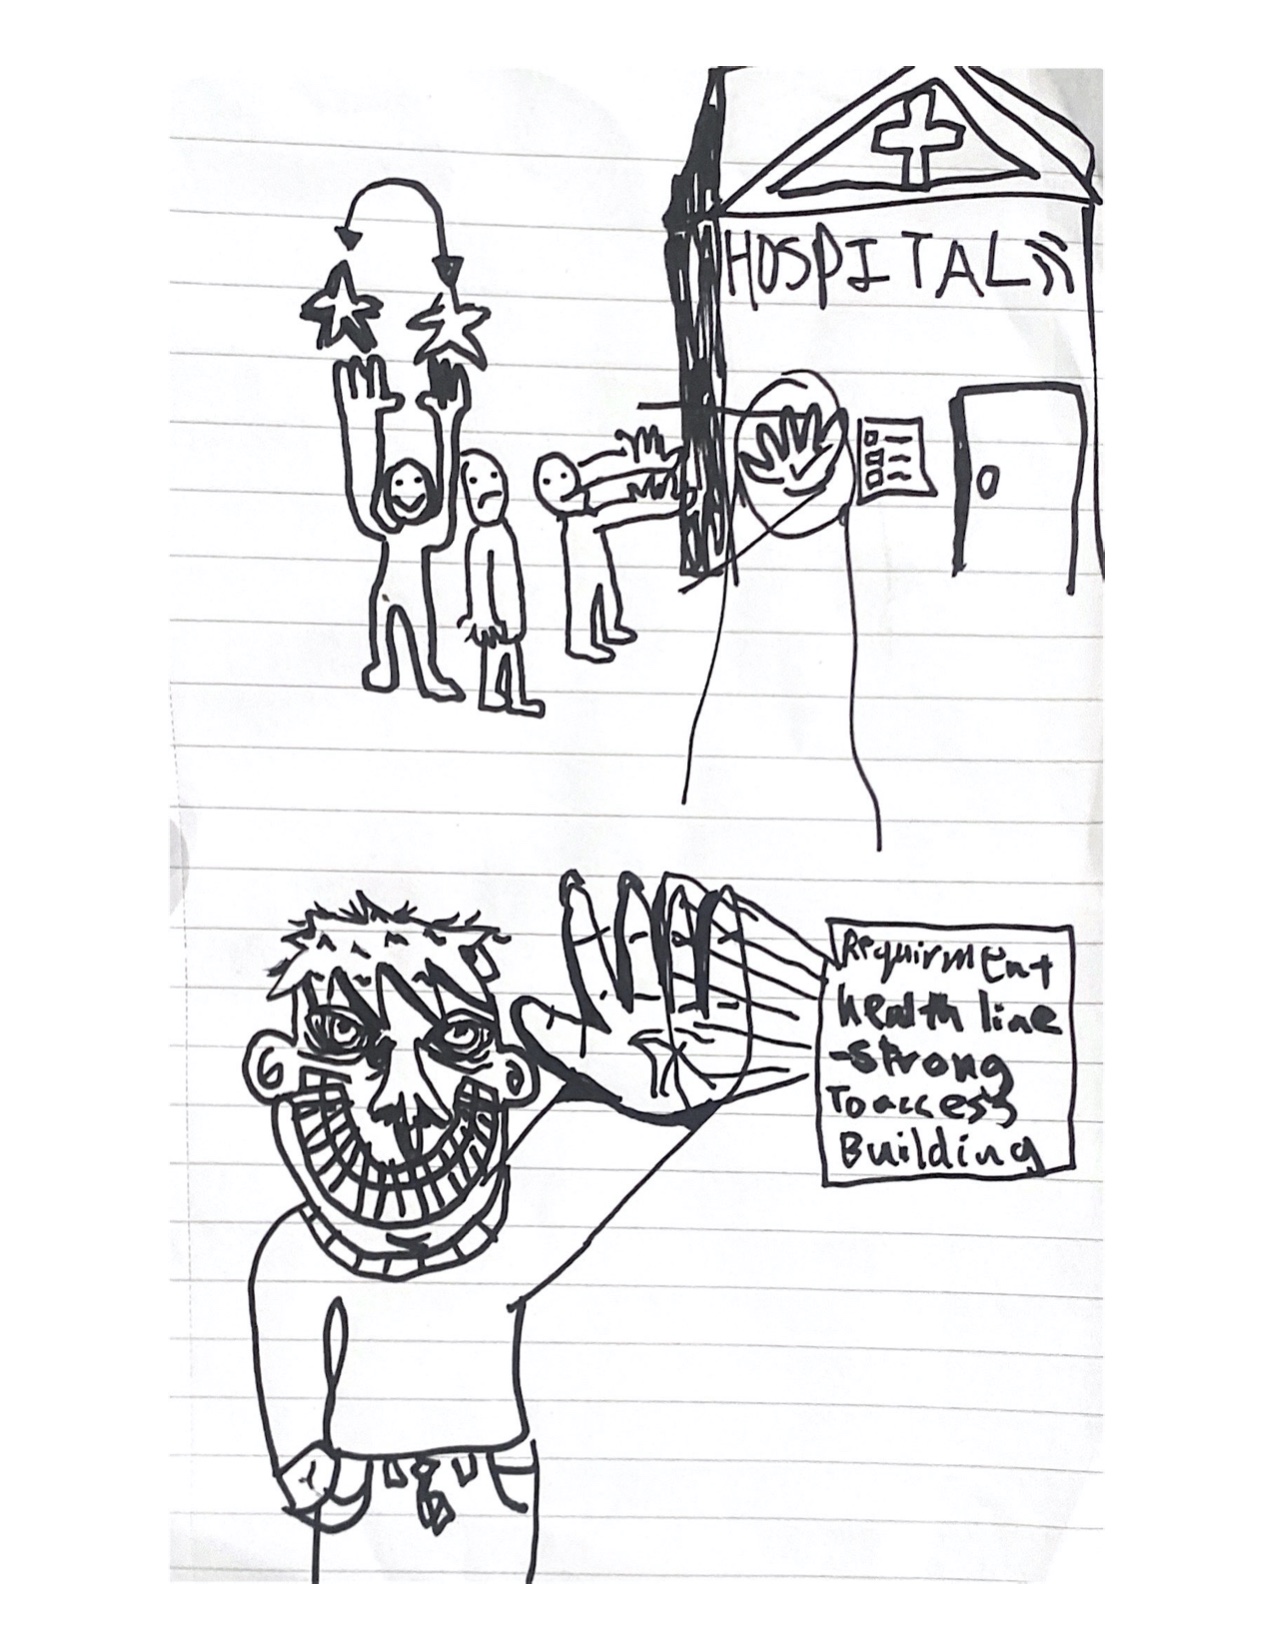 HOSPITAL
Requirment
health line
-strong
To access
Building